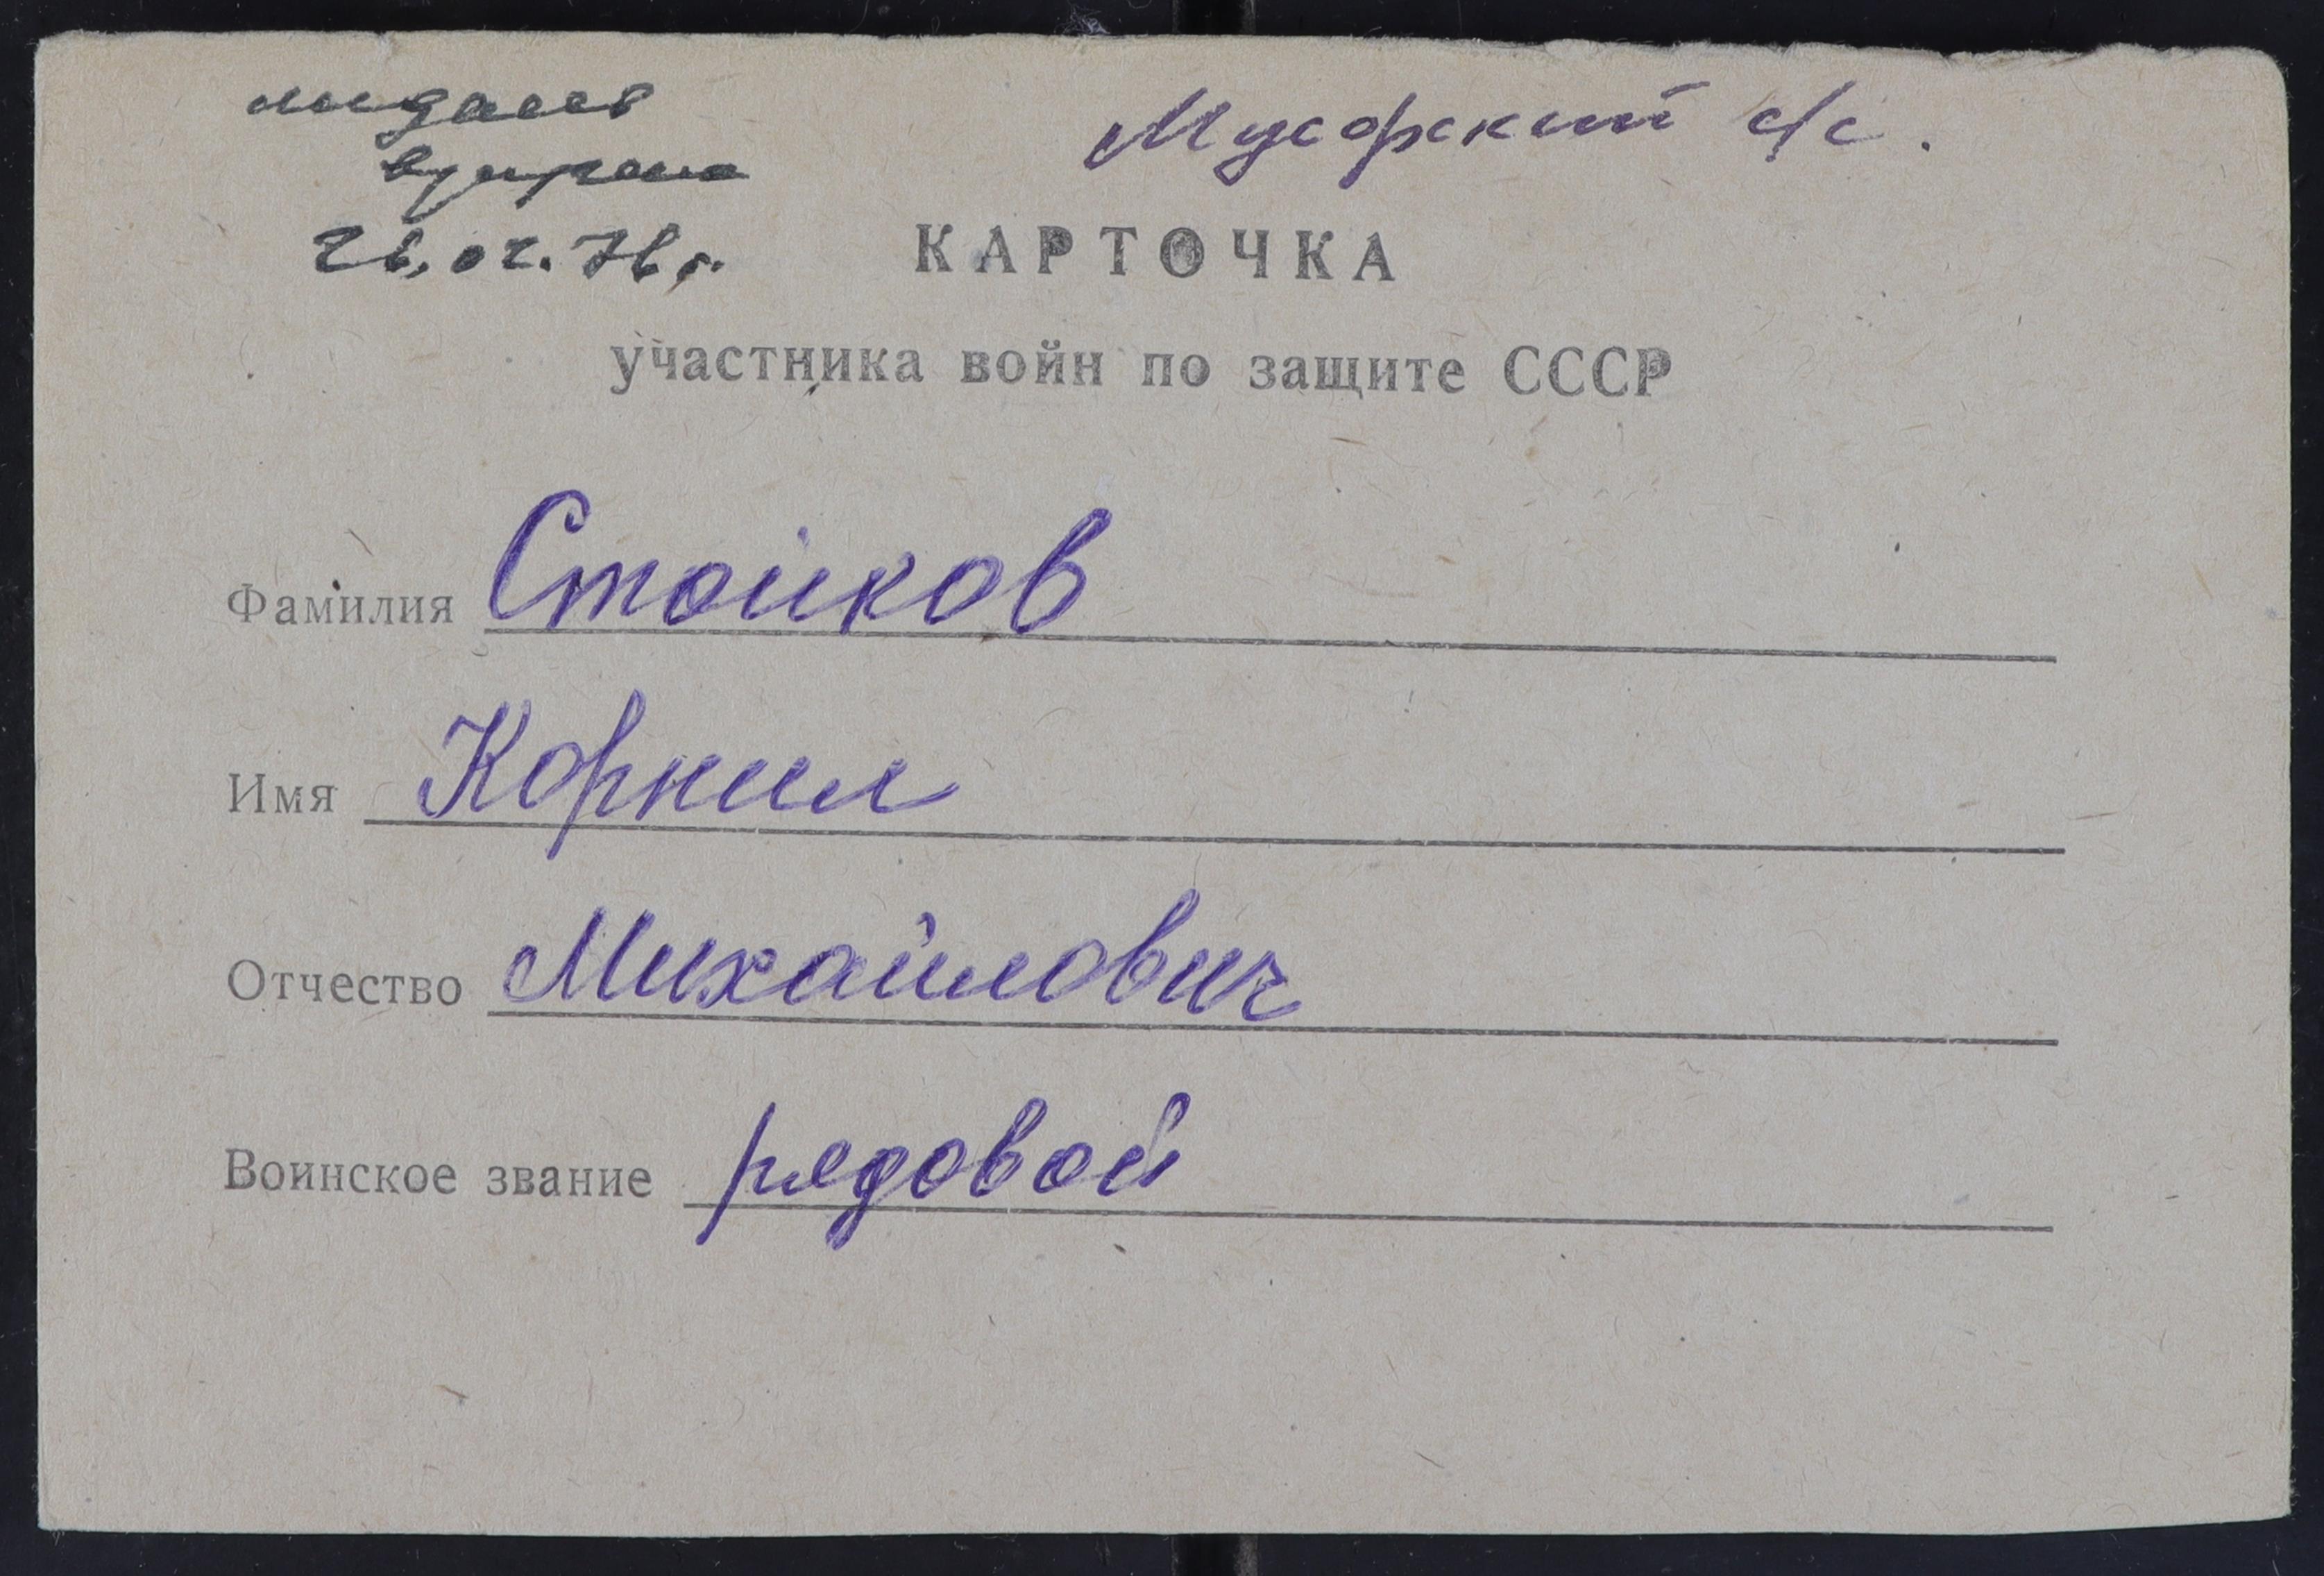 медаль
вручена
26.02.76 г.
Мусорский с/с.
КАРТОЧКА
участника войн по защите СССР
Фамилия Стойков
Имя Корнил
Отчество Михайлович
Воинское звание рядовой